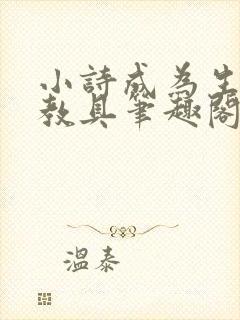 小詩成為生
教具筆趣閣
溫泰